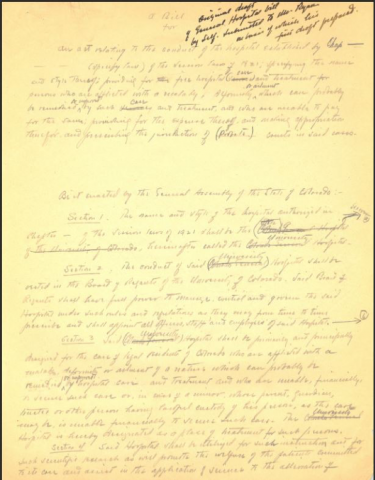 A Bill
for
Original draft
of General Hospital bill
by Self. Submitted to Mr. Ryan
a basis of which his
first draft prepared.
An act relating to the conduct of the hospital established by Chap —
— (Specify land) of the Session laws of 1921; specifying the name
and style thereof; providing for free hospital care and treatment for
persons who are afflicted with a malady, deformity, which can probably
be remedied by such care and treatment, and who are unable to pay
for the same, providing for the expense thereof, and making appropriation
therefor, and prescribing the jurisdiction of (District) courts in said cases.
Be it enacted by the General Assembly of the State of Colorado:-
Section 1. The name and style of the hospital authorized in
Chapter — of the Session laws of 1921 shall be the Hospital
of the University of Colorado, hereinafter called the University Hospital.
Section 2. The conduct of said University Hospital shall be
vested in the Board of Regents of the University of Colorado. Said Board of
Regents shall have full power to manage, control and govern the said
Hospital under such rules and regulations as they may from time to time
prescribe and shall appoint all officers, staff and employees of said Hospital
Section 3. Said University Hospital shall be primarily and principally
designed for the care of legal residents of Colorado who are afflicted with a
malady, deformity or ailment of a nature which can probably be
remedied by hospital care and treatment and who are unable, financially,
to secure such care or, in case of a minor, whose parent, guardian,
trustee or other person having lawful custody of his person, as the case
may be, is unable financially to secure such care. The University
Hospital is hereby designated as a place of treatment for such persons.
Section 4. Said Hospital shall be utilized for such instruction and for
such scientific research as will promote the welfare of the patients committed
to its care and assist in the application of science to the alleviation of